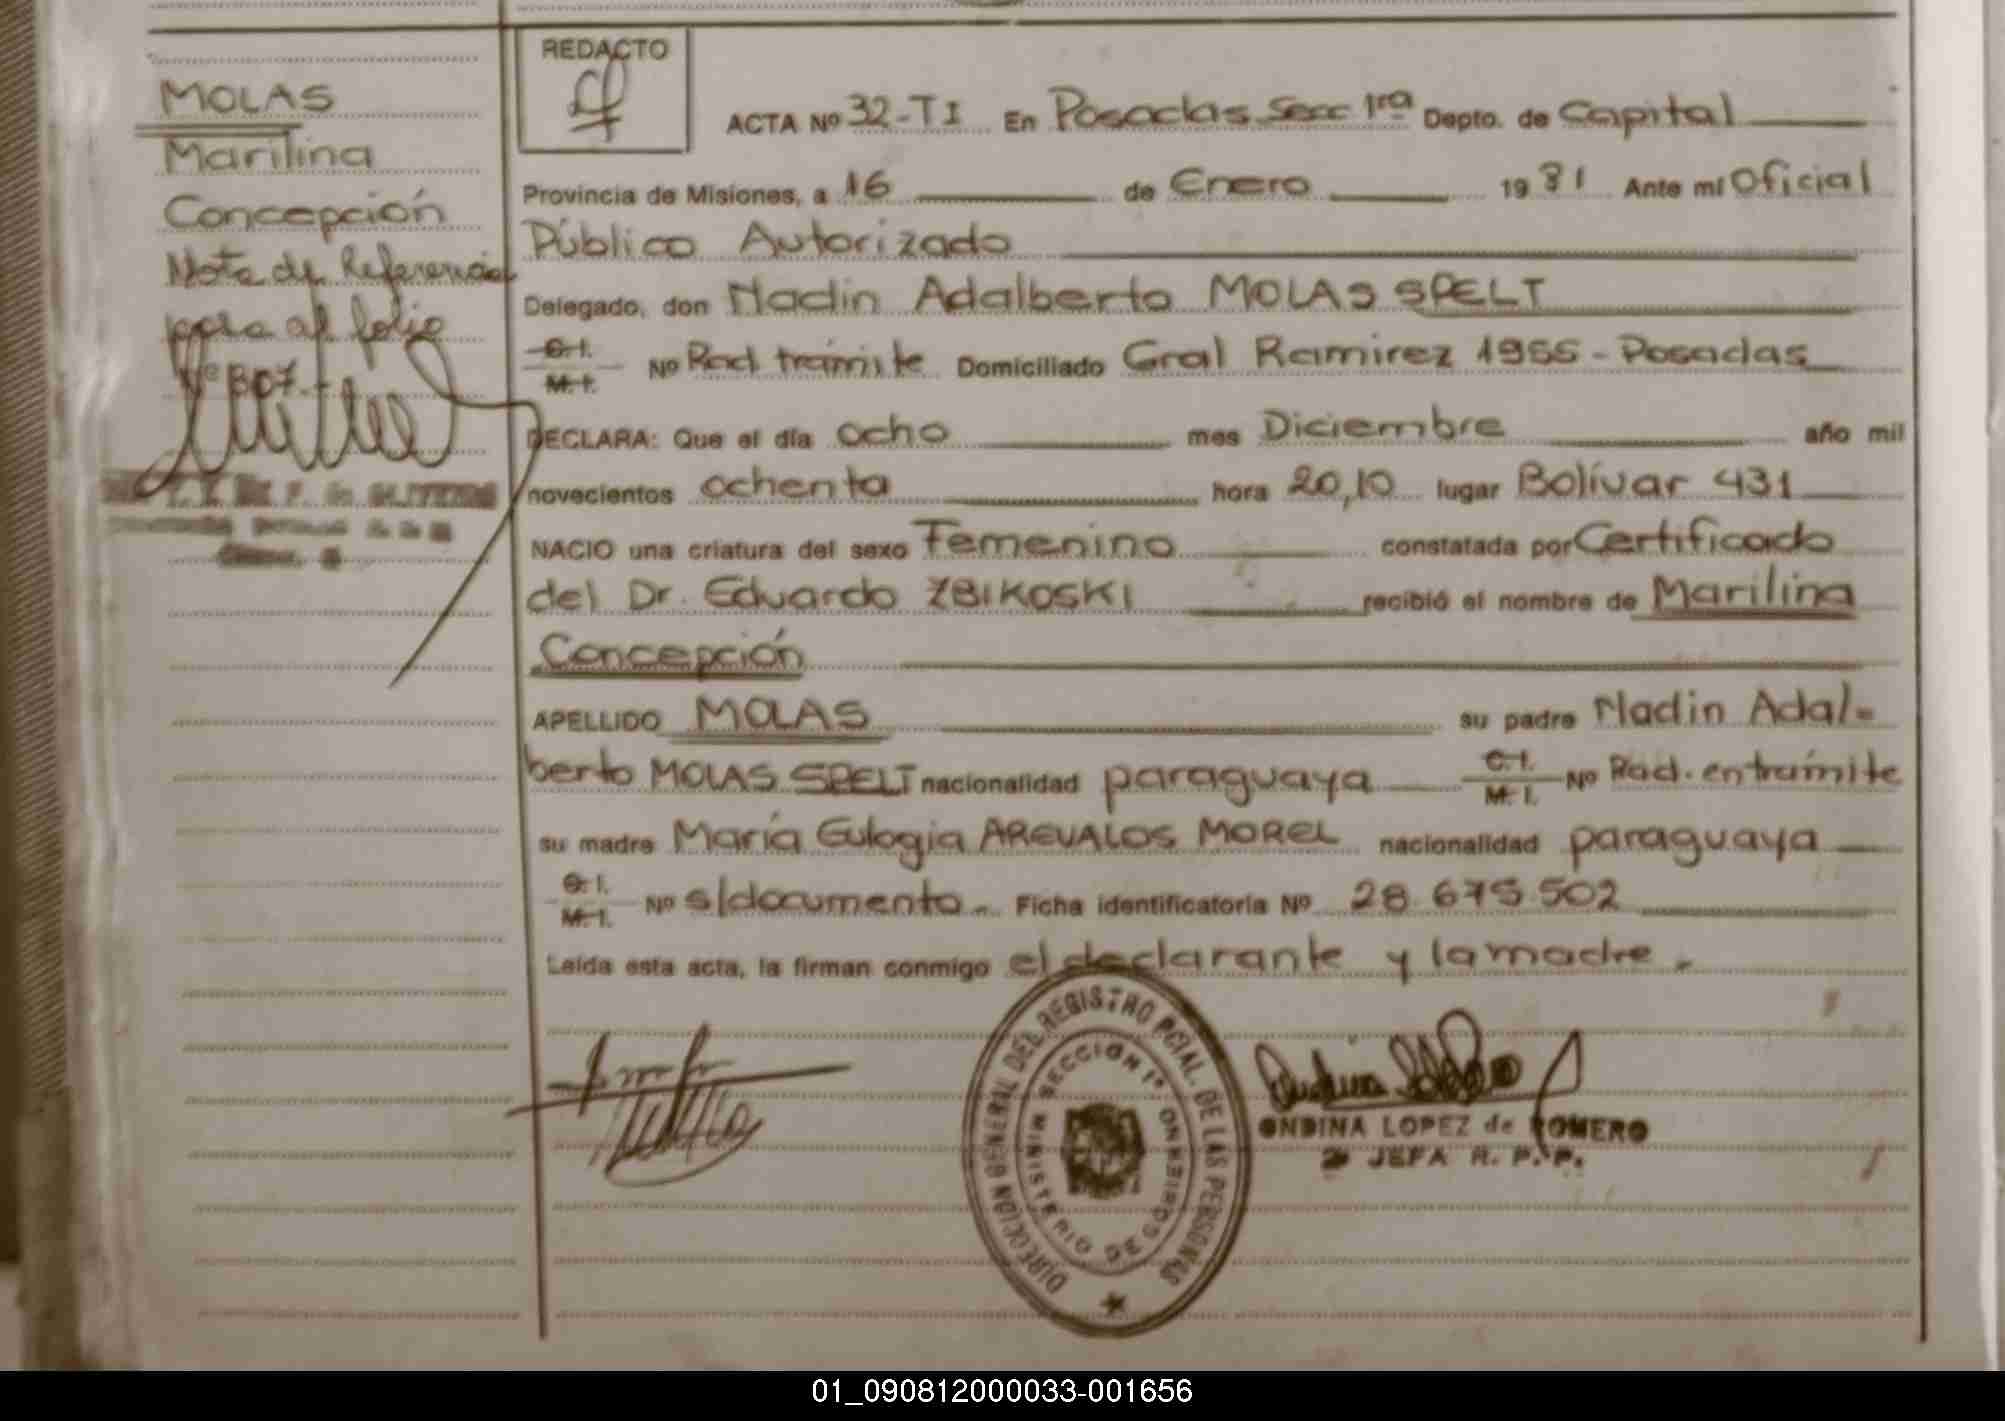 MOLAS
Marilina
Concepción
Nota de Referencia
para al folio
Nº 307.-
REDACTO
ACTA Nº 32-TI En Posadas Secc 1ra Depto. de Capital
Provincia de Misiones, a 16 de Enero 1981 Ante mí Oficial
Público Autorizado
Delegado, don Nadin Adalberto MOLAS SPELT
C.I. M.I. Nº Rad trámite Domiciliado Gral Ramirez 1955 - Posadas
DECLARA: Que el día ocho mes Diciembre año mil
novecientos ochenta hora 20,10 lugar Bolívar 431
NACIO una criatura del sexo Femenino constatada por Certificado
del Dr. Eduardo ZBIKOSKI recibió el nombre de Marilina
Concepción
APELLIDO MOLAS su padre Nadin Adal=
berto MOLAS SPELT nacionalidad paraguaya C.I. M.I. Nº Rad. en tramite
su madre María Eulogia AREVALOS MOREL nacionalidad paraguaya
C.I. M.I. Nº s/documento.- Ficha identificatoria Nº 28.675.502
Leída esta acta, la firman conmigo el declarante y la madre.-
DIRECCION GENERAL DEL REGISTRO PCIAL. DE LAS PERSONAS
SECCION 1ª
MINISTERIO DE GOBIERNO
ONDINA LOPEZ de ROMERO
JEFA R. P. P.
01_090812000033-001656